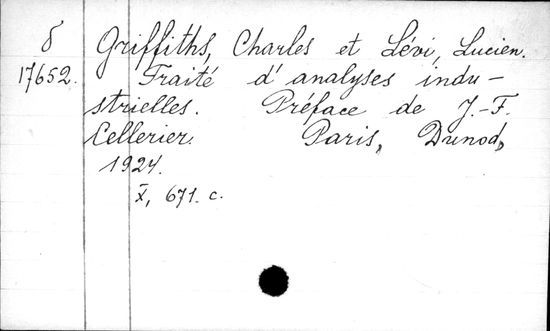 δ Griffiths, Charles et Lévi, Lucien.
17652. Traité d'analyses indu-
strielles. Préface de J.-F.
Cellerier. Paris, Dunod,
1924.
X, 671. c.